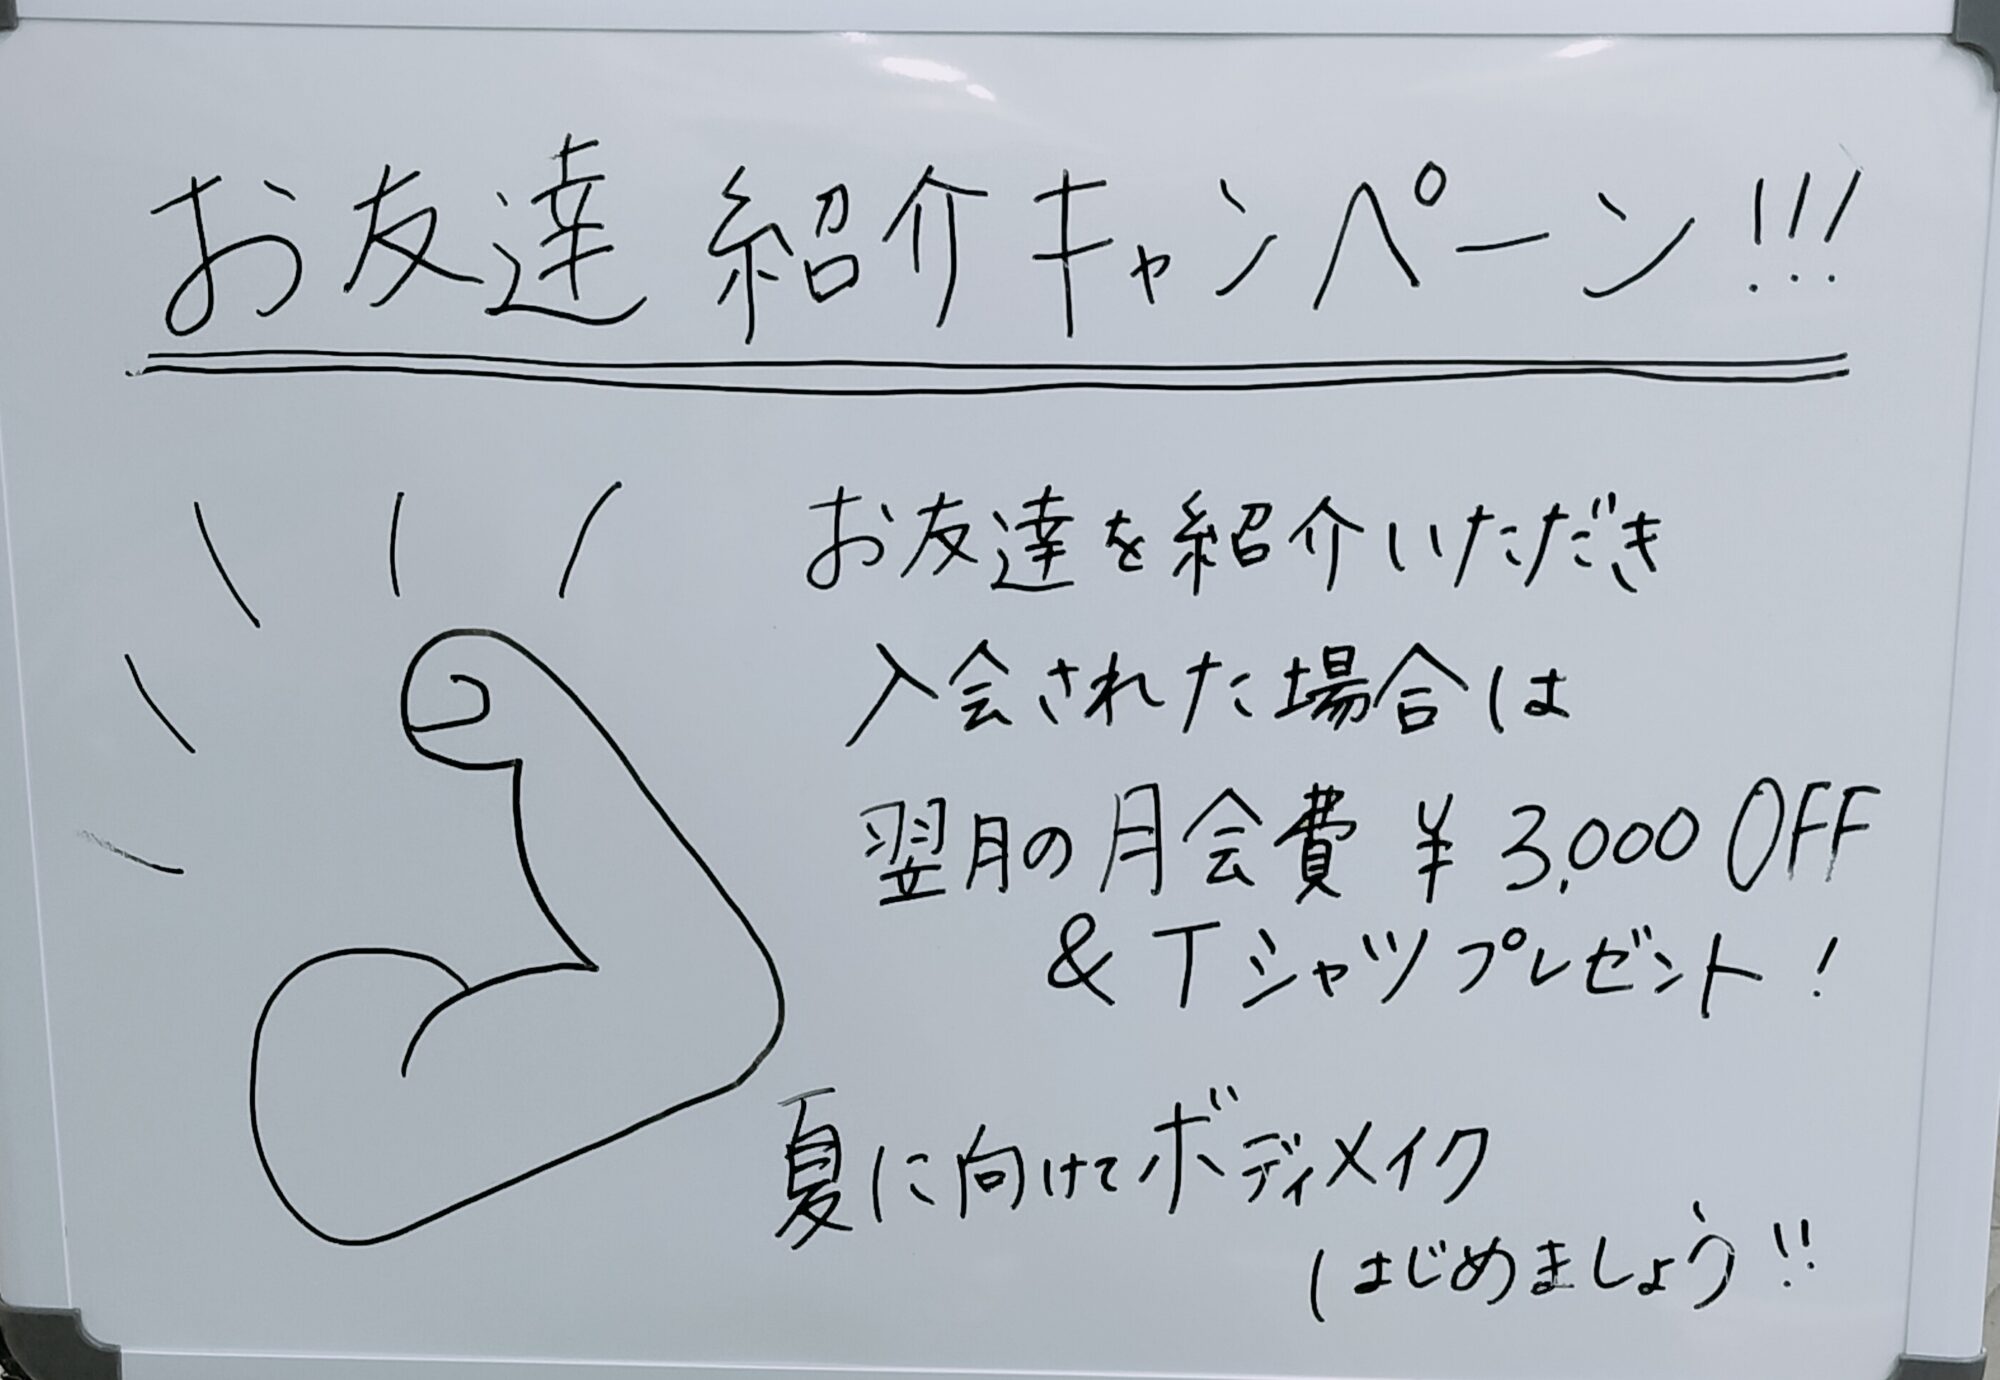 お友達紹介キャンペーン!!!
お友達を紹介いただき
入会された場合は
翌月の月会費 ¥3,000 OFF
& Tシャツプレゼント!
夏に向けてボディメイク
はじめましょう!!